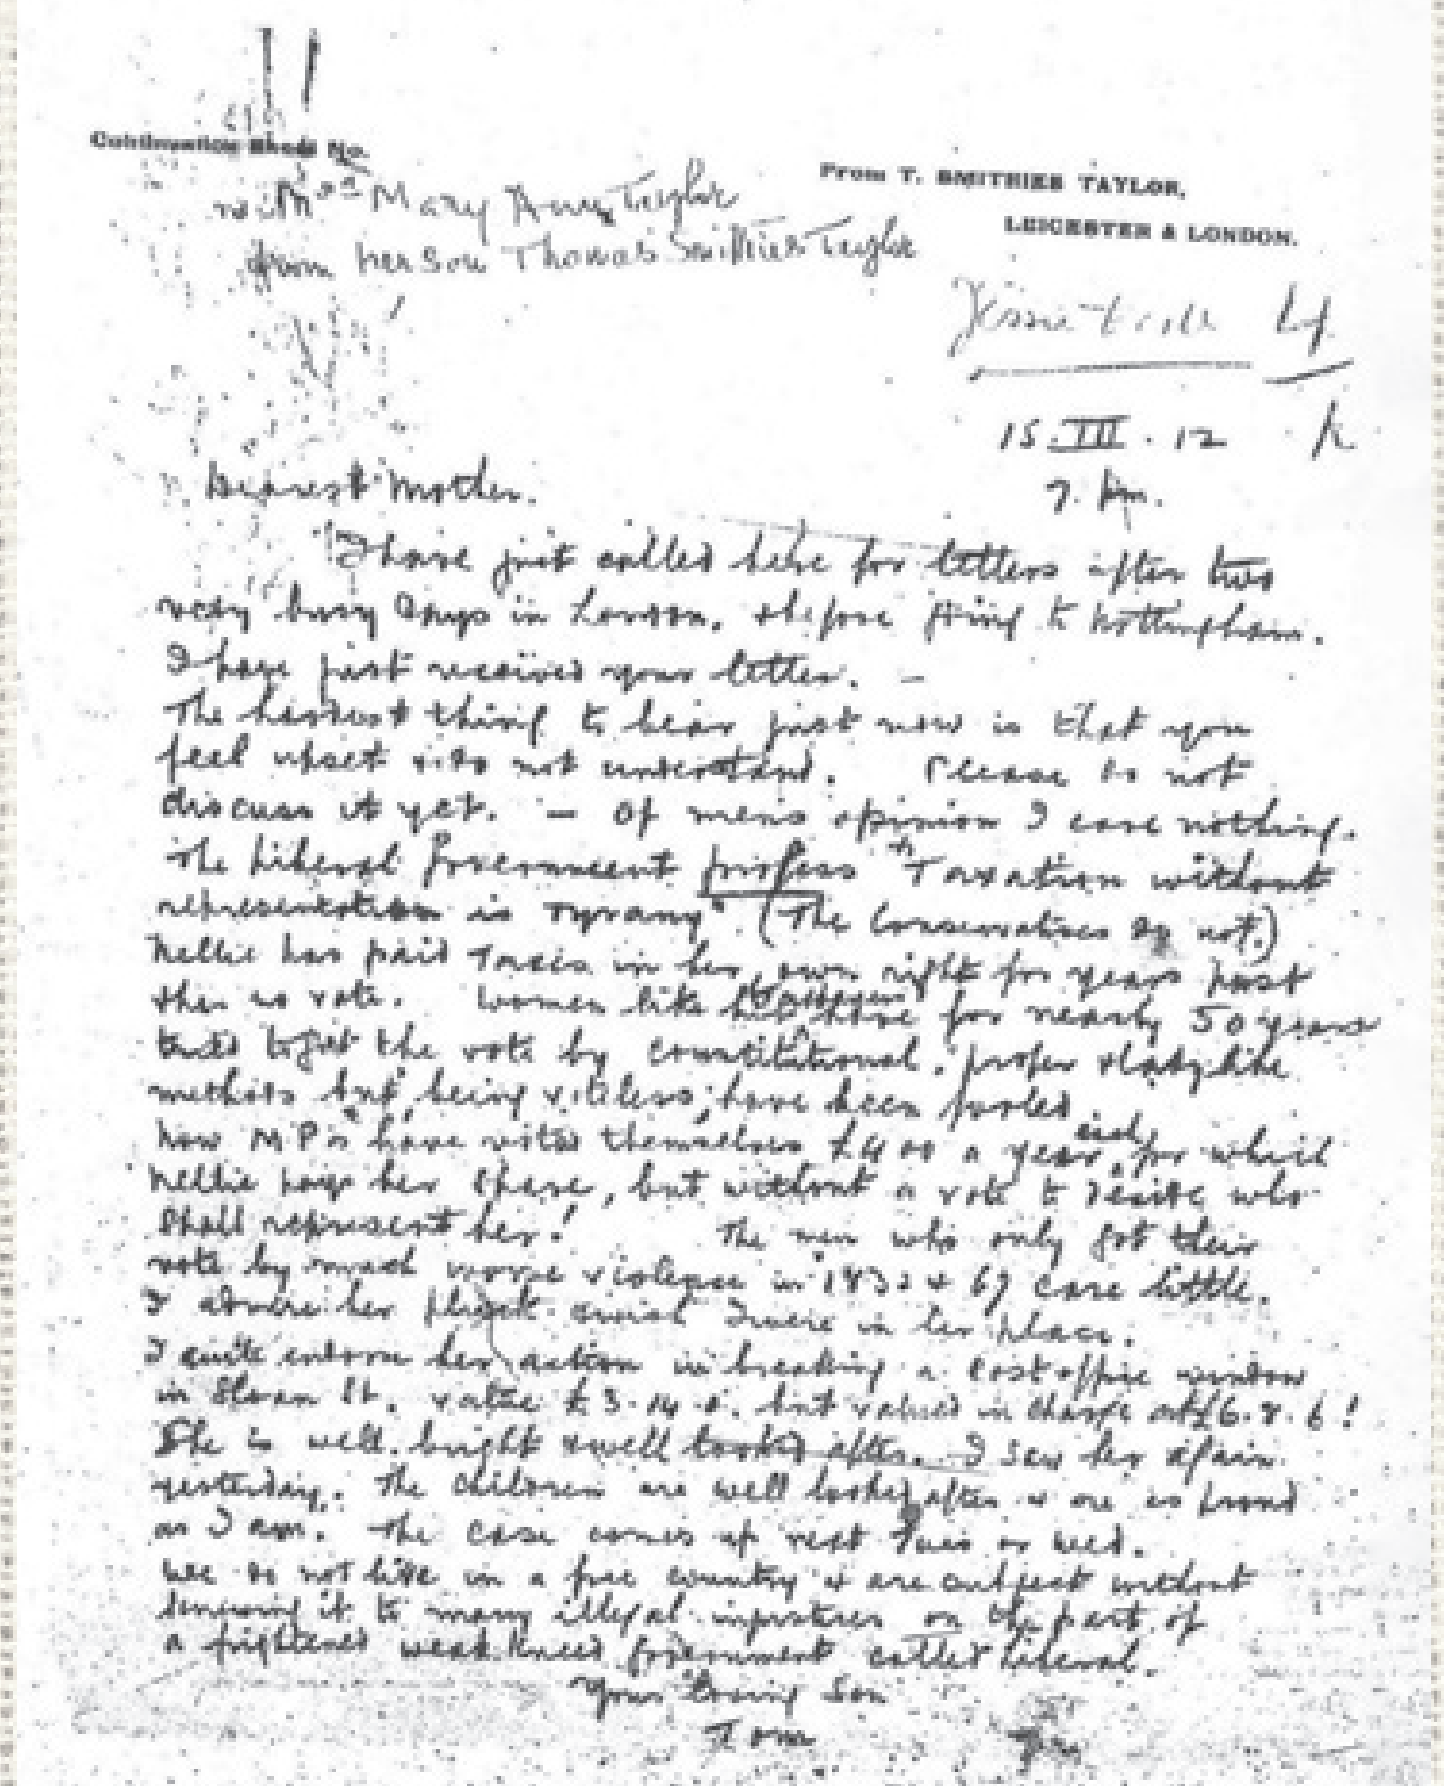 Continuation Sheet No.
From T. SMITHIES TAYLOR,
LEICESTER & LONDON.
Mrs Mary Ann Taylor
from her son Thomas Smithies Taylor
15.III.12
7. pm.
Dearest Mother.
I have just called here for letters after two
very busy days in London. & before going to Nottingham.
I have just received your letter. –
The hardest thing to bear just now is that you
feel upset & do not understand. Please do not
discuss it yet. – Of men's opinion I care nothing.
The Liberal Government profess "Taxation without
representation is Tyrany". (The Conservatives do not.)
Nellie has paid Taxes in her own right for years past
& has no vote. Women like her have for nearly 50 years
tried to get the vote by constitutional, proper & ladylike
methods but, being voteless, have been fooled
Now M.P.s have voted themselves £400 a year each, for which
Nellie pays her share, but without a vote to decide who
shall represent her! The men who only got their
vote by much worse violence in 1832 & 67 care little.
I admire her pluck & wish I were in her place.
I quite endorse her action in breaking a Post office window
in Sloan St. value £3-14-0. but valued in charge at £6.8.6!
She is well. bright & well looked after. I saw her again
yesterday. The children are well looked after & are as proud
as I am. The case comes up next Tues or Wed.
We do not live in a free country & are subject without
knowing it to many illegal impostures on the part of
a frightened weak kneed government called liberal.
Your loving Son
Tom